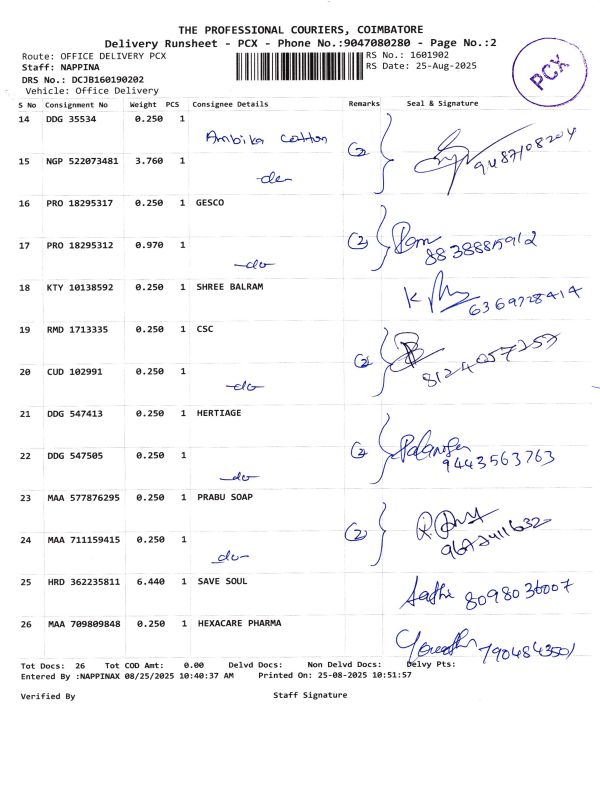 THE PROFESSIONAL COURIERS, COIMBATORE
Delivery Runsheet - PCX - Phone No.:9047080280 - Page No.:2
Route: OFFICE DELIVERY PCX
RS No.: 1601902
Staff: NAPPINA
RS Date: 25-Aug-2025
DRS No.: DCJB160190202
Vehicle: Office Delivery
PCX
S No Consignment No Weight PCS Consignee Details Remarks Seal & Signature
14 DDG 35534 0.250 1
Ambika Cotton (2) 9487108204
15 NGP 522073481 3.760 1
-do-
16 PRO 18295317 0.250 1 GESCO
17 PRO 18295312 0.970 1 (2) Ram
-do- 8838885912
18 KTY 10138592 0.250 1 SHREE BALRAM
6369728414
19 RMD 1713335 0.250 1 CSC
(2) 8124057257
20 CUD 102991 0.250 1
-do-
21 DDG 547413 0.250 1 HERTIAGE
22 DDG 547505 0.250 1 (2)
-do- 9443563763
23 MAA 577876295 0.250 1 PRABU SOAP
24 MAA 711159415 0.250 1 (2)
-do-
25 HRD 362235811 6.440 1 SAVE SOUL
Sathi 8098036007
26 MAA 709809848 0.250 1 HEXACARE PHARMA
7904843501
Tot Docs: 26 Tot COD Amt: 0.00 Delvd Docs: Non Delvd Docs: Delvy Pts:
Entered By :NAPPINAX 08/25/2025 10:40:37 AM Printed On: 25-08-2025 10:51:57
Verified By Staff Signature